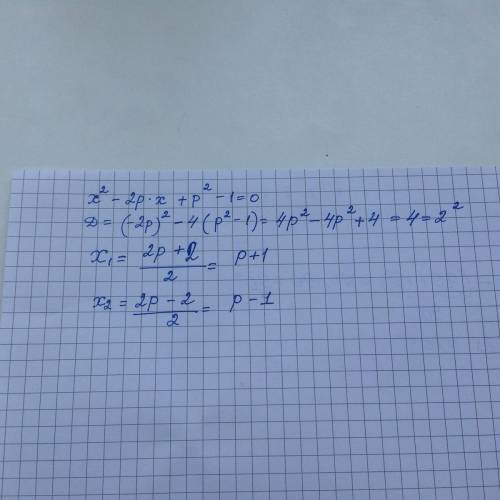 x² - 2p·x + p² - 1 = 0
D = (-2p)² - 4(p² - 1) = 4p² - 4p² + 4 = 4 = 2²
x₁ = (2p + 2)/2 = p + 1
x₂ = (2p - 2)/2 = p - 1